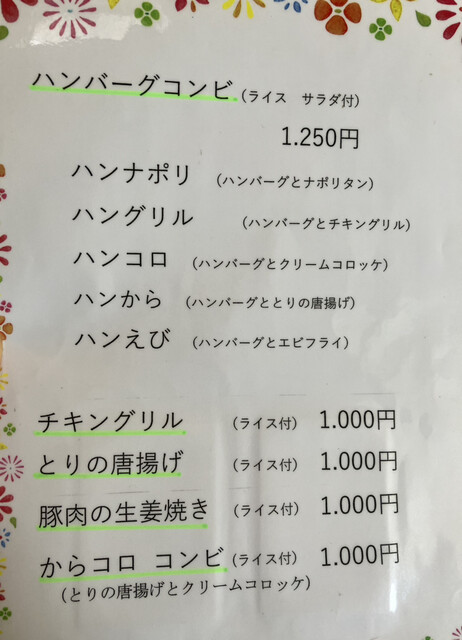 ハンバーグコンビ (ライス サラダ付)
1.250円
ハンナポリ (ハンバーグとナポリタン)
ハングリル (ハンバーグとチキングリル)
ハンコロ (ハンバーグとクリームコロッケ)
ハンから (ハンバーグととりの唐揚げ)
ハンえび (ハンバーグとエビフライ)
チキングリル (ライス付) 1.000円
とりの唐揚げ (ライス付) 1.000円
豚肉の生姜焼き (ライス付) 1.000円
からコロ コンビ (ライス付) 1.000円
(とりの唐揚げとクリームコロッケ)